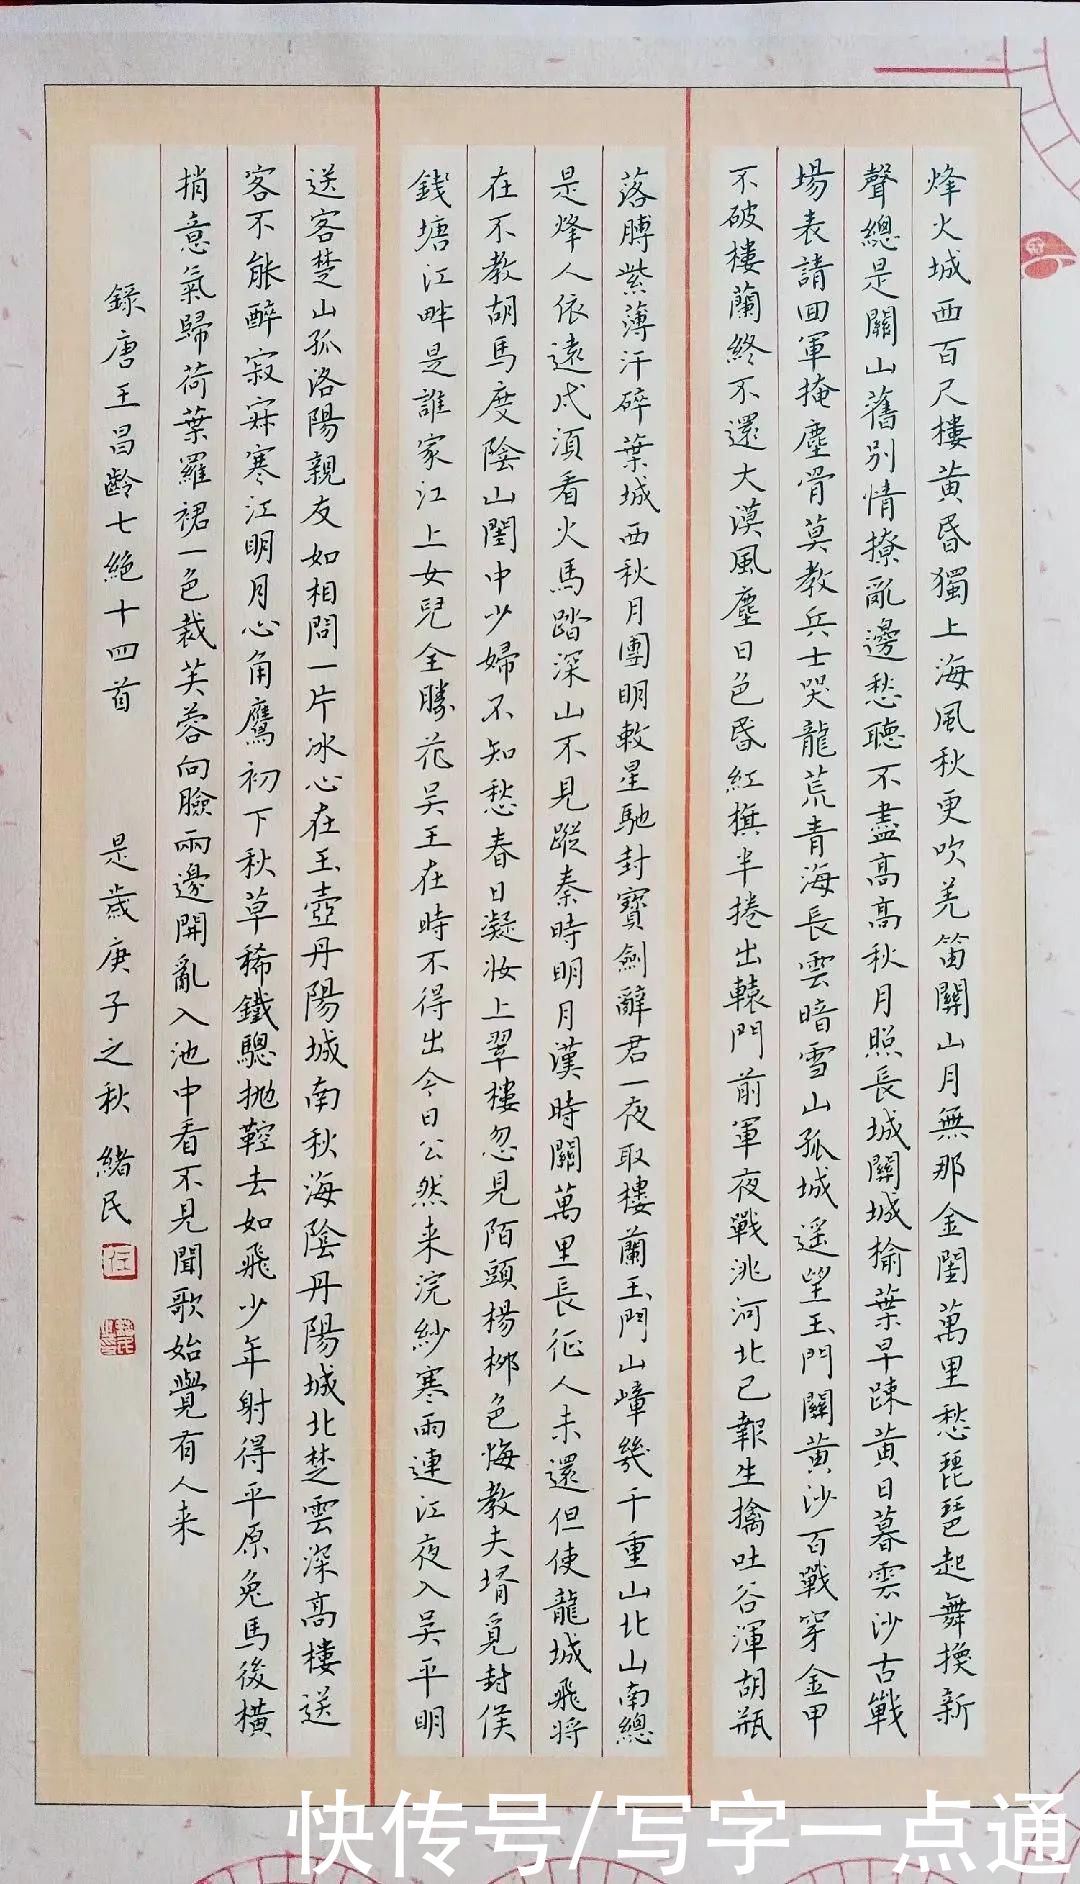 烽火城西百尺樓黃昏獨上海風秋更吹羌笛關山月無那金閨萬里愁琵琶起舞換新
聲總是關山舊別情撩亂邊愁聽不盡高高秋月照長城關城榆葉早踈黃日暮雲沙古戰
場表請回軍掩塵骨莫教兵士哭龍荒青海長雲暗雪山孤城遥望玉門關黃沙百戰穿金甲
不破樓蘭終不還大漠風塵日色昏紅旗半捲出轅門前軍夜戰洮河北已報生擒吐谷渾胡瓶
落膊紫薄汗碎葉城西秋月團明敕星馳封寶劍辭君一夜取樓蘭玉門山嶂幾千重山北山南總
是烽人依遠戍須看火馬踏深山不見蹤秦時明月漢時關萬里長征人未還但使龍城飛將
在不教胡馬度陰山閨中少婦不知愁春日凝妝上翠樓忽見陌頭楊柳色悔教夫壻覓封侯
錢塘江畔是誰家江上女兒全勝花吴王在時不得出今日公然来浣紗寒雨連江夜入吴平明
送客楚山孤洛陽親友如相問一片冰心在玉壺丹陽城南秋海陰丹陽城北楚雲深高樓送
客不能醉寂寂寒江明月心角鷹初下秋草稀鐵驄抛鞚去如飛少年射得平原兔馬後橫
捎意氣歸荷葉羅裙一色裁芙蓉向臉兩邊開亂入池中看不見聞歌始覺有人来
錄唐王昌齡七絶十四首 是歲庚子之秋 緒民
快传号/写字一点通